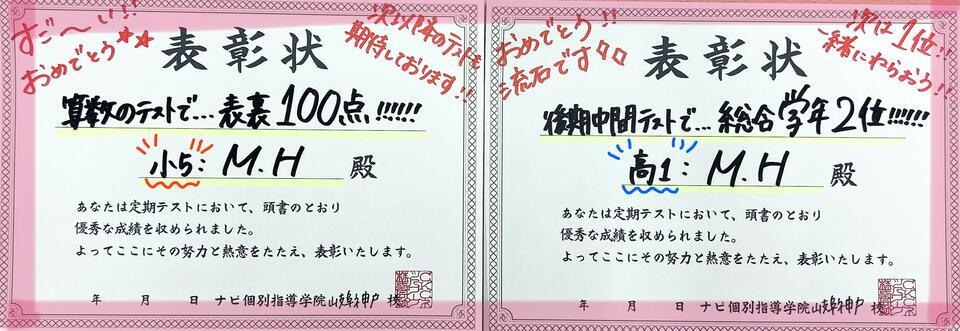 すご〜い!!
おめでとう★★
次以降のテストも
期待しております!!
表彰状
算数のテストで…表裏100点!!!!!!
小5: M.H 殿
あなたは定期テストにおいて、頭書のとおり
優秀な成績を収められました。
よってここにその努力と熱意をたたえ、表彰いたします。
年 月 日 ナビ個別指導学院山 校
おめでとう!!
流石です
次は1位!!
一緒にねらおう!!
表彰状
後期中間テストで…総合学年2位!!!!!!
高1: M.H 殿
あなたは定期テストにおいて、頭書のとおり
優秀な成績を収められました。
よってここにその努力と熱意をたたえ、表彰いたします。
年 月 日 ナビ個別指導学院山 校